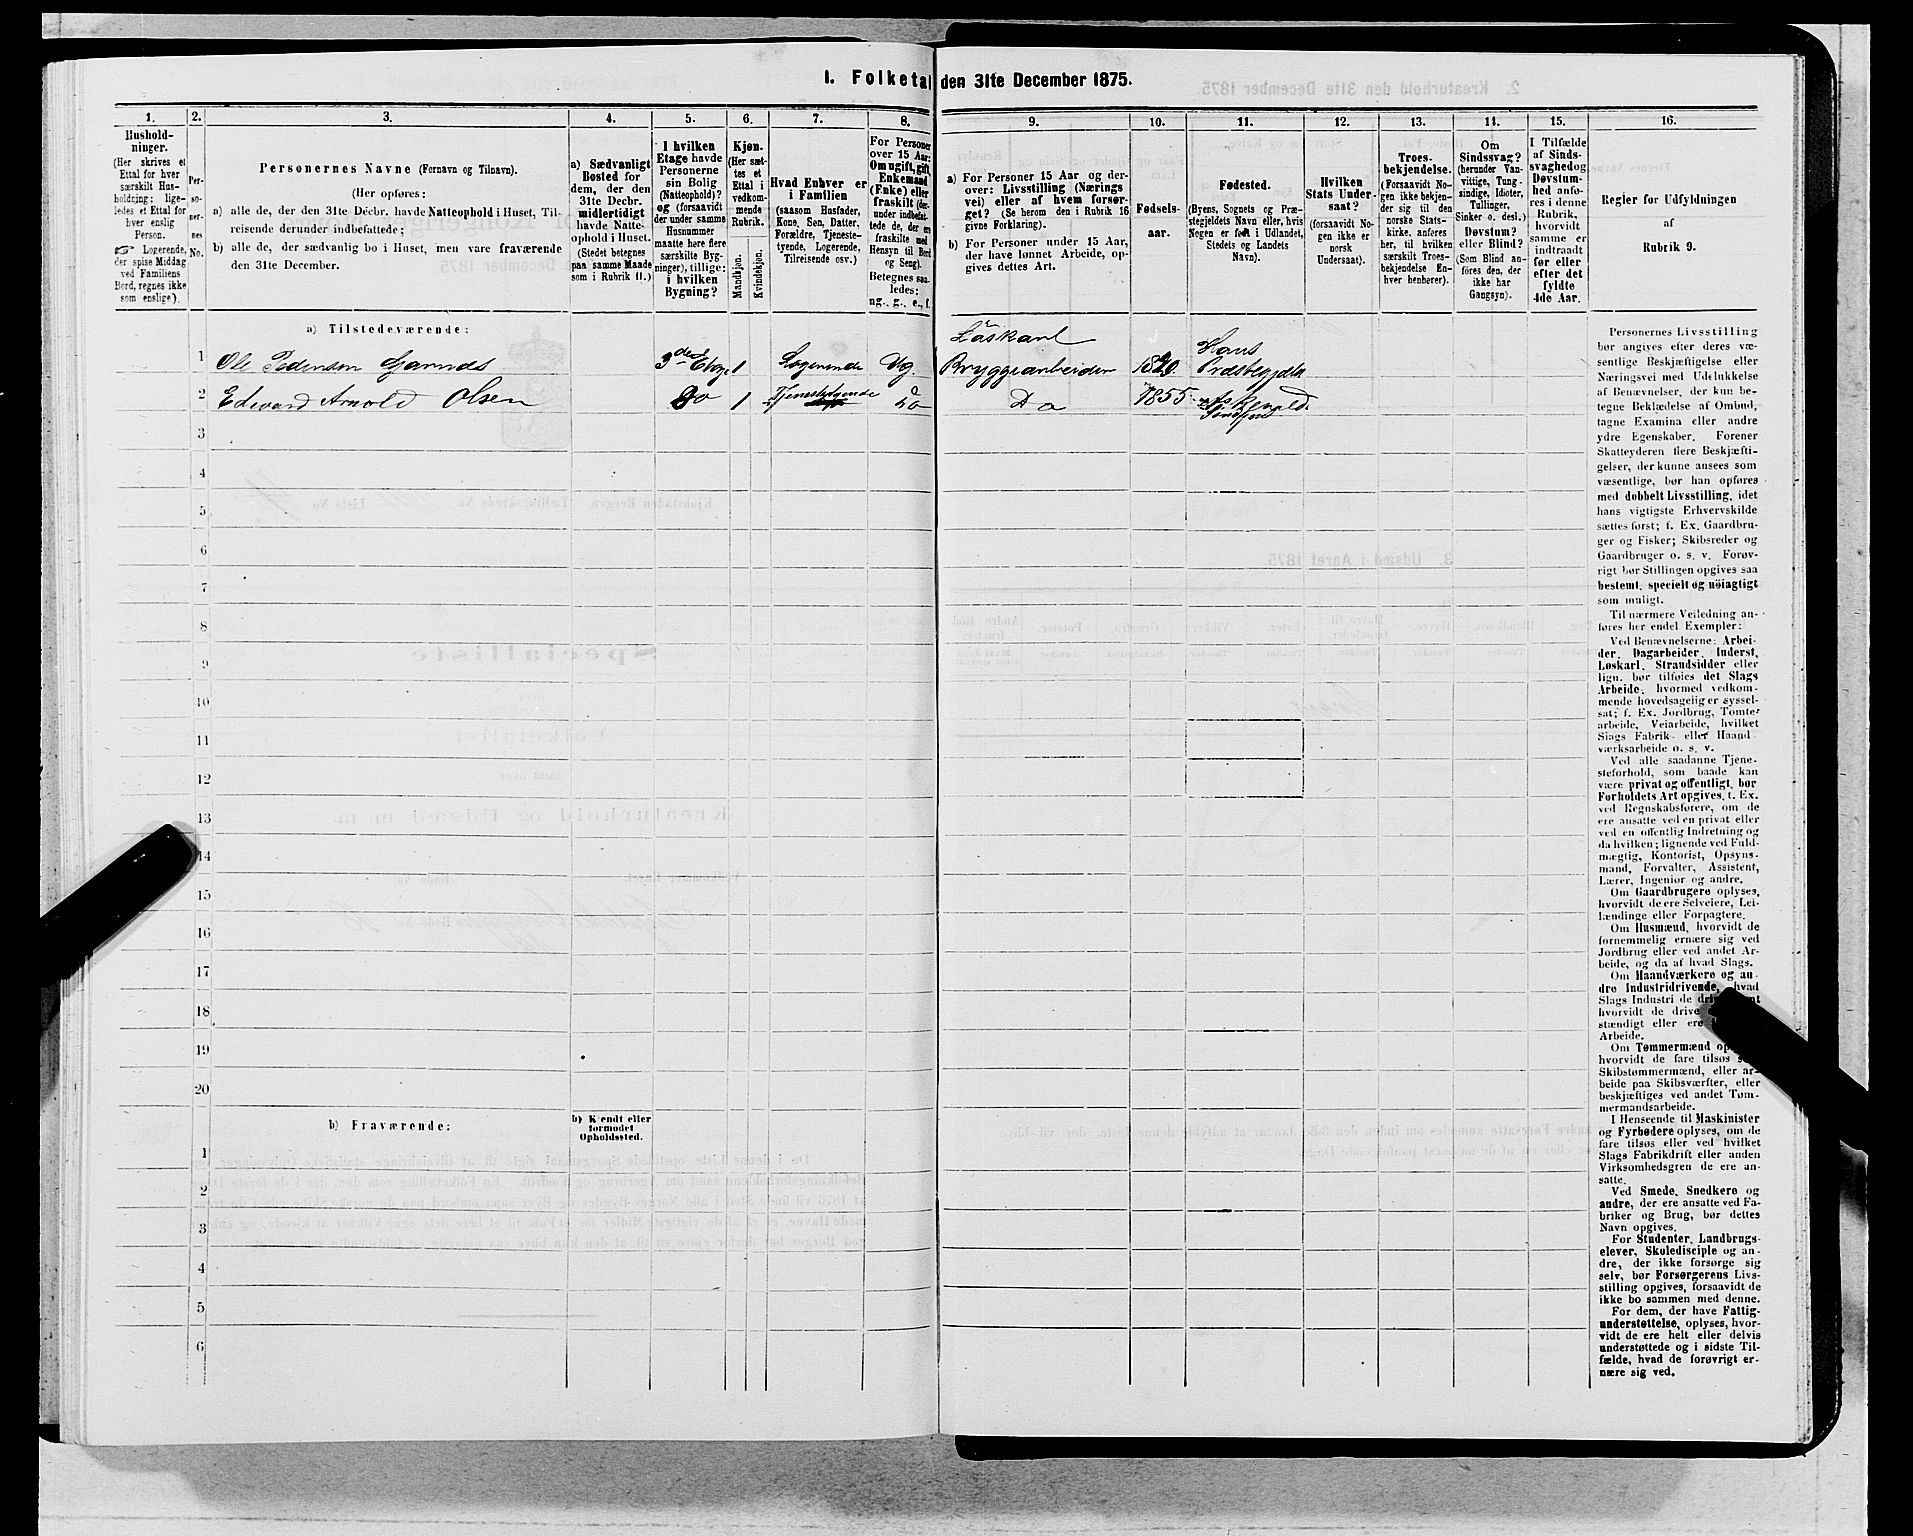 1. Folketal den 31te December 1875.
1.
2.
3.
4.
5.
6.
7.
8.
Hushold-
ninger.
(Her skrives et
Ettal for hvert
særskilt Hus-
holdning; lige-
ledes et Ettal for
hver enslig
Person.
☞ Logerende,
der spise Middag
ved Familiens
Bord, regnes ikke
som enslige).
Per-
so-
ner-
nes
No.
Personernes Navne (Fornavn og Tilnavn).
(Her opføres:
a) alle de, der den 31te Decbr. havde Natteophold i Huset, Til-
reisende derunder indbefattede;
b) alle de, der sædvanlig bo i Huset, men vare fraværende
den 31te December.
a) Sædvanligt
Bosted for
dem, der den
31te Decbr.
midlertidigt
havde Natte-
ophold i Huset.
(Stedet betegnes
paa samme Maade
som i Rubrik 11.)
I hvilken
Etage havde
Personerne
sin Bolig
(Natteophold)?
og (forsaavidt
der under samme
Husnummer
maatte høre flere
særskilte Byg-
ninger), tillige:
i hvilken
Bygning?
Kjøn.
(Her sæt-
tes et
Ettal i
vedkom-
mende
Rubrik.
Mandkjøn.
Kvindekjøn.
Hvad Enhver er
i Familien
(saasom Husfader,
Kone, Søn, Datter,
Forældre, Tjeneste-
tyende, Logerende,
Tilreisende osv.)
For Personer
over 15 Aar:
Om ugift, gift,
Enkemand
(Enke) eller
fraskilt (der-
under indbefat-
tede de, der ere
fraskilte med
Hensyn til Bord
og Seng).
Betegnes saa-
ledes:
ug., g., e., f.
9.
10.
11.
12.
13.
14.
15.
16.
a) For Personer 15 Aar og der-
over: Livsstilling (Nærings
vei) eller af hvem forsør-
get? (Se herom den i Rubrik 16
givne Forklaring).
b) For Personer under 15 Aar,
der have lønnet Arbeide, op-
gives dettes Art.
Fødsels-
aar.
Fødested.
(Byens, Sognets og Præ-
stegjeldets Navn eller, hvis
Nogen er født i Udlandet,
Stedets og Landets
Navn).
Hvilken
Stats Under-
saat?
(forsaavidt No-
gen ikke er
norsk
Undersaat).
Troes-
bekjendelse.
(Forsaavidt No-
gen ikke bekjen-
der sig til den
norske Stats-
kirke, anføres
her, til hvilken
særskilt Troes-
bekjendelse En-
hver henhører).
Om
Sindssvag?
(herunder Van-
vittige, Tung-
sindige, Idioter,
Tullinger,
Sinker o. desl.)
Døvstum?
eller Blind?
(Som Blind an-
føres den, der
ikke har
Gangsyn).
I Tilfælde
af Sinds-
svaghedog
Døvstum-
hed anfø-
res i denne
Rubrik,
hvorvidt
samme er
indtraadt
før eller
efter det
fyldte
4de Aar.
Regler for Udfyldningen
af
Rubrik 9.
a) Tilstedeværende:
1 Ole Pedersen 3die Etage 1 Logerende Ug. Løskarl Bryggearbeider 18 Præstegjeld
2 Edvard Arnold Olsen Do 1 Tjenestetyende Do Do 1855
3
4
5
6
7
8
9
10
11
12
13
14
15
16
17
18
19
20
b) Fraværende:
b) Kjendt eller
formodet
Opholdssted.
1
2
3
4
5
6
Personernes Livsstilling
bør angives efter deres væ-
sentlige Beskjæftigelse eller
Næringsvei med Udelukkelse
af Benævnelser, der kun be-
tegne Beklædelse af Ombud,
tagne Examina eller andre
ydre Egenskaber. Forener
Skatteyderen flere Beskjæfti-
gelser, der kunne ansees som
væsentlige, bør han opføres
med dobbelt Livsstilling, idet
hans vigtigste Erhvervskilde
sættes først; f. Ex. Gaardbru-
ger og Fisker; Skibsreder og
Gaardbruger o. s. v. Forøv-
rigt bør Stillingen opgives saa
bestemt, specielt og nøiagtigt
som muligt.
Til nærmere Veiledning an-
føres her endel Exempler:
Ved Benævnelserne: Arbei-
der, Dagarbeider, Inderst,
Løskarl, Strandsidder eller
lign. bør tilføies det Slags
Arbeide, hvormed vedkom-
mende hovedsagelig er syssel-
sat; f. Ex. Jordbrug, Tomte-
arbeide, Veiarbeide, hvilket
Slags Fabrik- eller Haand
værksarbeide o. s. v.
Ved alle saadanne Tjene-
steforhold, som baade kan
være privat og offentligt, bør
Forholdets Art opgives, t. Ex.
ved Regnskabsførere, om de
ere ansatte ved en privat eller
ved en offentlig Indretning og
da hvilken; lignende ved Fuld-
mægtig, Kontorist, Opsyns-
mand, Forvalter, Assistent,
Lærer, Ingeniør og andre.
Om Gaardbrugere oplyses,
hvorvidt de ere Selveiere, Lei-
lændinge eller Forpagtere.
Om Husmænd, hvorvidt de
fornemmelig ernære sig ved
Jordbrug eller ved andet Ar-
beide, og da af hvad Slags.
Om Haandværkere og an-
dre Industridrivende, hvad
Slags Industri de
hvorvidt de drive
stændigt eller ere
Arbeide.
Om Tømmermænd
hvorvidt de fare tilsøs
Skibstømmermænd, eller ar-
beide paa Skibsværfter, eller
beskjæftiges ved andet Tøm-
mermandsarbeide.
I Henseende til Maskinister
og Fyrbødere oplyses, om de
fare tilsøs eller ved hvilket
Slags Fabrikdrift eller anden
Virksomhedsgren de ere an-
satte.
Ved Smede, Snedkere og
andre, der ere ansatte ved Fa-
briker og Brug, bør dettes
Navn opgives.
For Studenter, Landbrugs-
elever, Skoledisciple og an-
dre, der ikke forsørge sig
selv, bør Forsørgerens Livs-
stilling opgives, forsaavidt de
ikke bo sammen med denne.
For dem, der have Fattig-
understøttelse, oplyses, hvor-
vidt de ere helt eller delvis
understøttede og i sidste Til-
fælde, hvad de forøvrigt er-
nære sig ved.